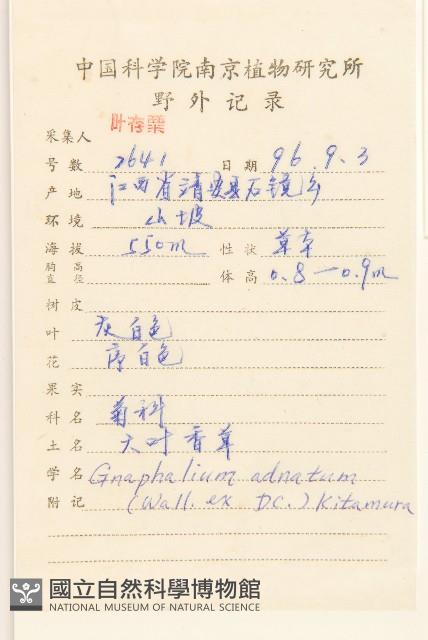 中国科学院南京植物研究所
野外记录
采集人 叶存粟
号数 2641 日期 96.9.3
产地 江西省靖安县石镜乡
环境 山坡
海拔 550m 性状 草本
胸高直径 体高 0.8—0.9m
树皮
叶 灰白色
花 序白色
果实
科名 菊科
土名 大叶香草
学名 Gnaphalium adnatum
附记 (Wall. ex DC.) Kitamura
國立自然科學博物館
NATIONAL MUSEUM OF NATURAL SCIENCE